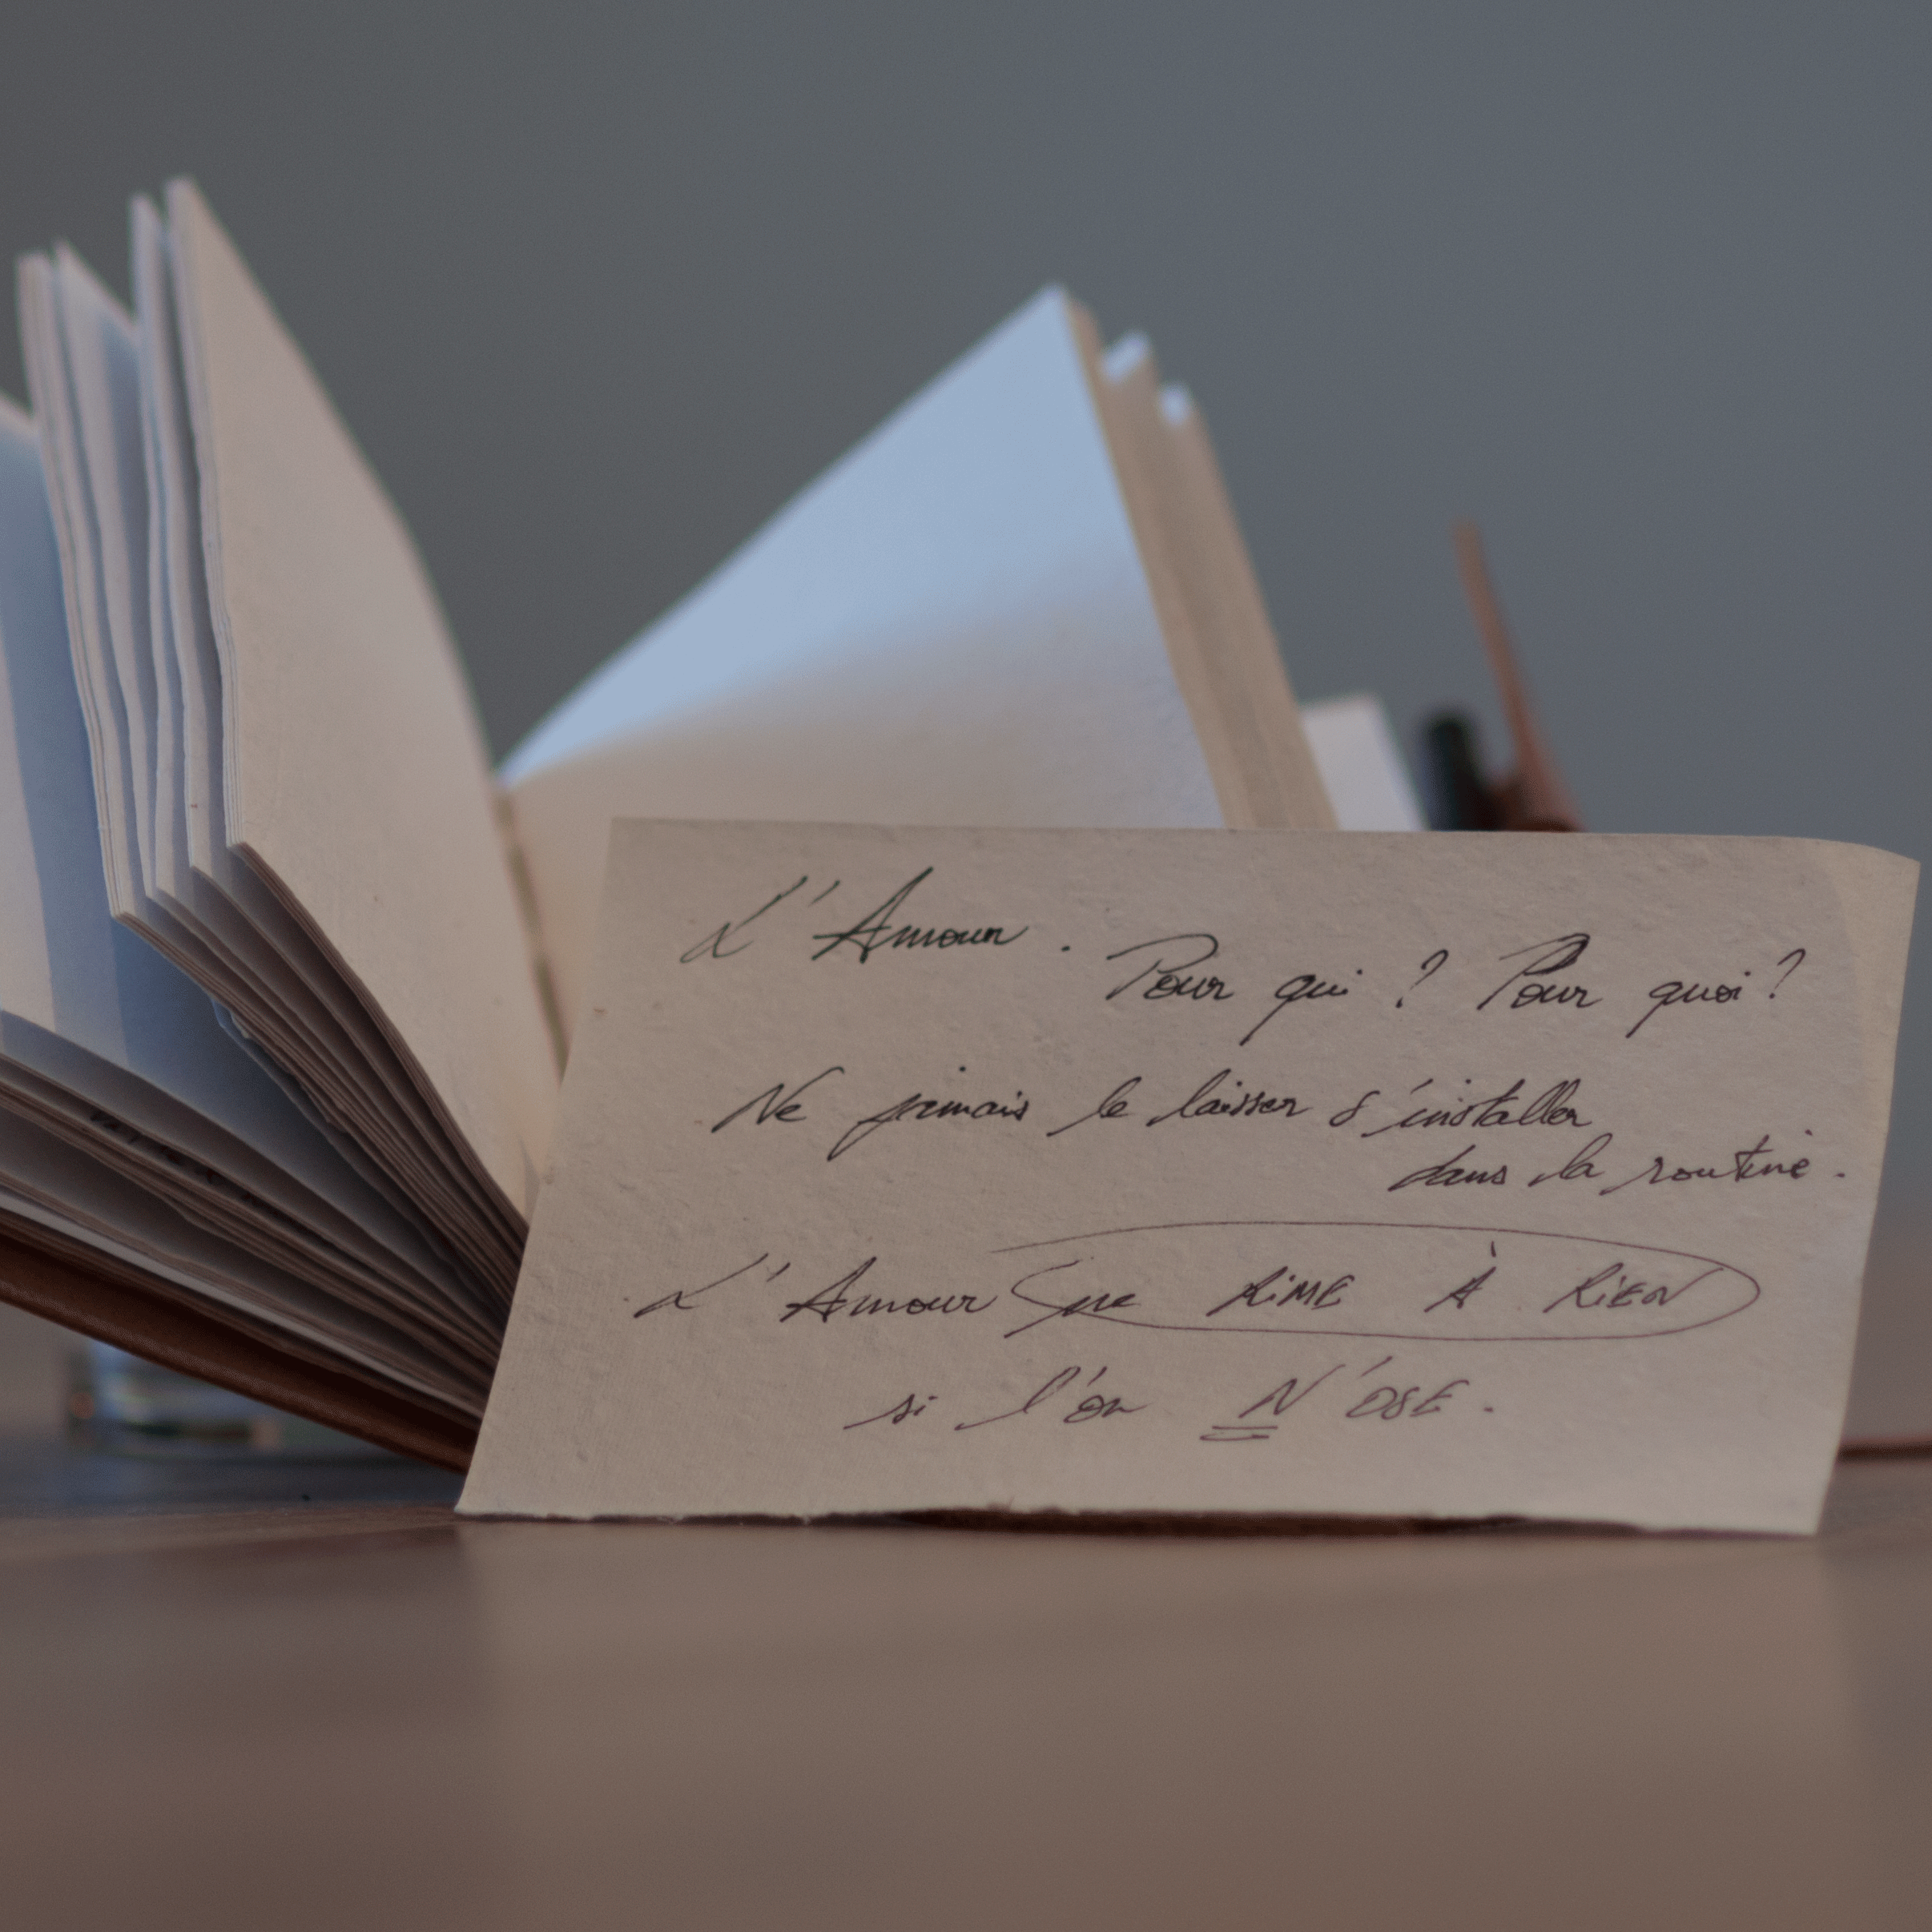 L'Amour.
Pour qui ? Pour quoi ?
Ne jamais le laisser s'installer
dans la routine.
L'Amour ne RIME À RIEN
si l'on N'OSE.